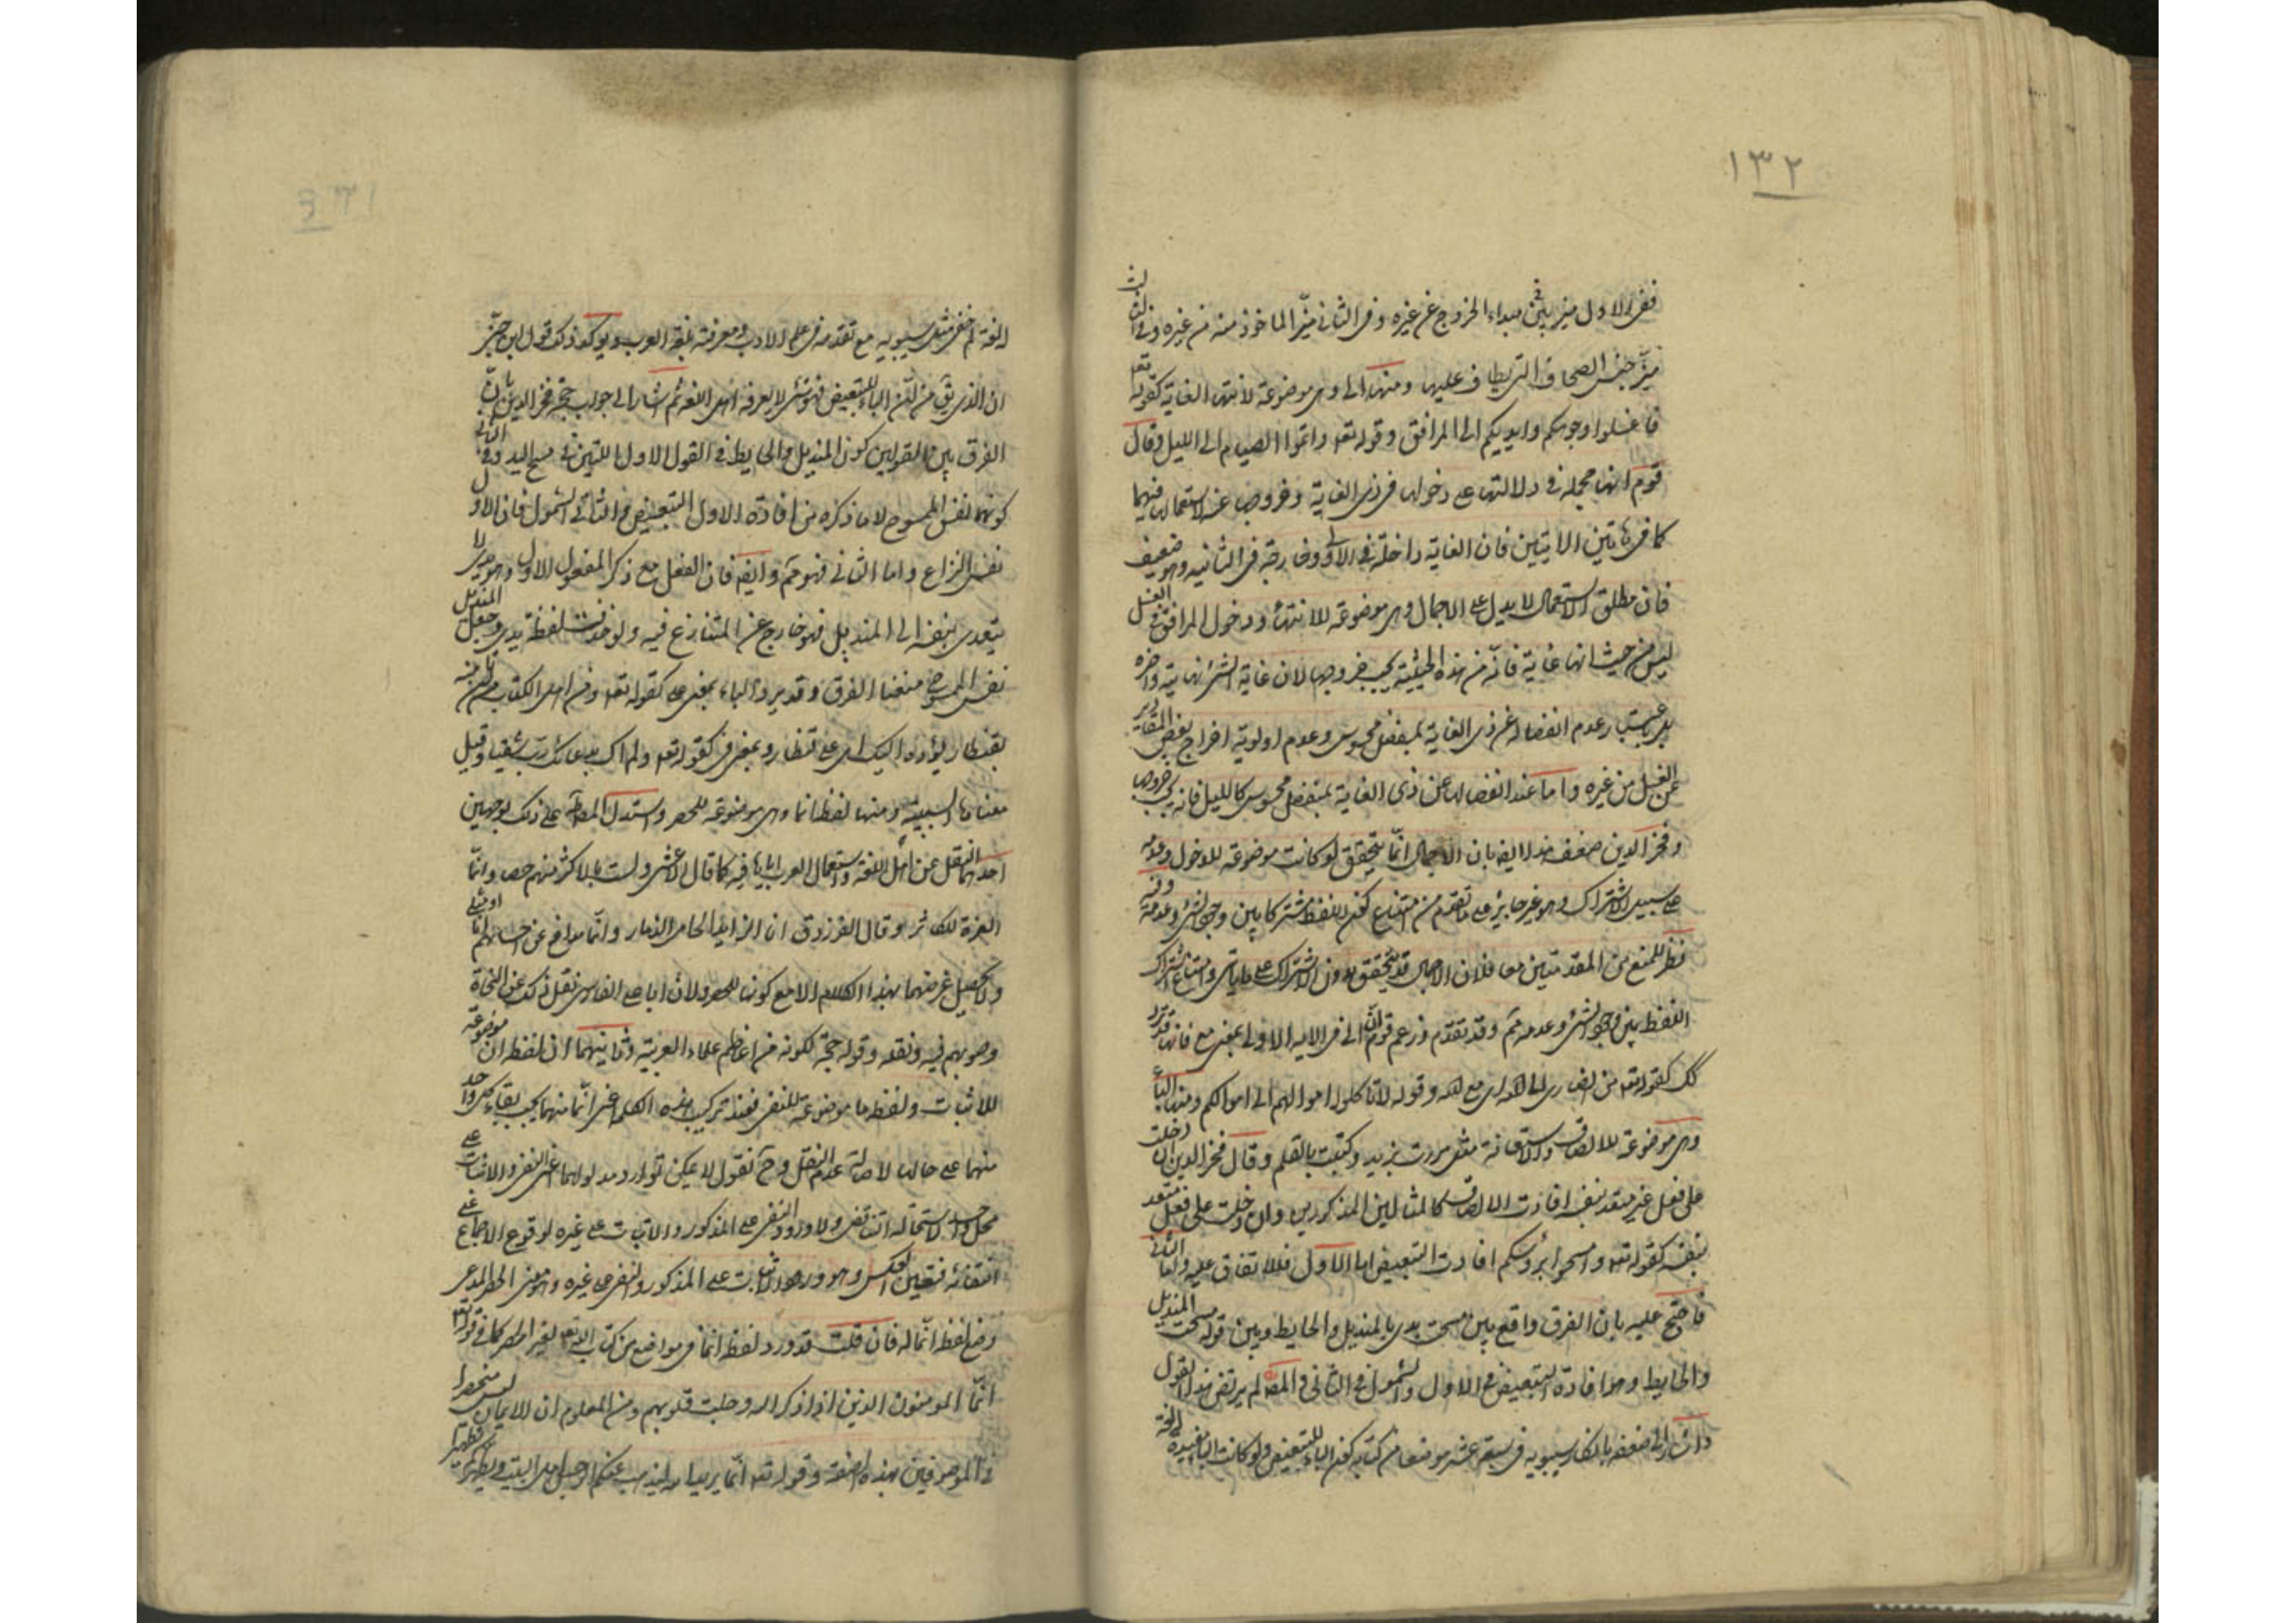 ١٣٢
ففى الاول ميز بين مبداء الخروج عن غيره وفى الثانى ميّز الماخوذ منه من غيره وفى الثالث
ميّز جنس الصحاف التى يطاف عليهم ومنها الى وهى موضوعة لانتهاء الغاية كقوله تعه
فاغسلوا وجوهكم وايديكم الى المرافق وقوله تعه واتموا الصيام الى الليل وقال
قوم انها مجملة فى دلالتها على دخولها فى ذى الغاية وخروجها عنه لاستعمالها فيهما
كما فى هاتين الايتين فان الغاية داخلة فى الاولى وخارجة فى الثانيه وهو ضعيف
فان مطلق الاستعمال لا يدل على الاجمال وهى موضوعة للانتهاء ودخول المرافق فى الغسل
ليس من حيث انها غاية فانّه من هذه الحيثية يجب خروجها لان غاية الشئ نهايته واخره
بل باعتبار عدم انفصاله عن ذى الغاية بمفصل محسوس وعدم اولوية اخراج بعض المقادير
عن الغسل من غيره واما عند انفصالها عن ذى الغاية بمنفصل محسوس كالليل فانه يجب خروجها
وفخر الدين ضعف هذا ايضه بان الاجمال انّما يتحقق لو كانت موضوعة للدخول وعدمه
على سبيل الاشتراك وهو غير جايز على ما تقدم من امتناع كون اللفظ مشتركا بين وجود الشئ وعدمه وفيه
نظر للمنع من المقدمتين معا فلان الاجمال قد يتحقق بدون الاشتراك على ما ياتى وامتناع اشتراك
اللفظ بين وجود الشئ وعدمه مم وقد تقدم وزعم قوم ان الى فى الايه الاولى بمعنى مع فانها قد ترد
كك كقوله تعه من انصارى الى الله اى مع الله وقوله لا تاكلوا اموالهم الى اموالكم ومنها الباء
وهى موضوعة للالصاق والاستعانة مثل مررت بزيد وكتبت بالقلم وقال فخر الدين ان دخلت
على فعل غير متعد بنفسه افادت الالصاق كالمثالين المذكورين وان دخلت على فعل متعد
بنفسه كقوله تعه وامسحوا برؤسكم افادت التبعيض اما الاول فللاتفاق عليه واما الثانى
فاحتج عليه بان الفرق واقع بين مسحت يدى بالمنديل والحايط وبين قوله مسحت المنديل
والحايط وهو افادة التبعيض فى الاول والشمول فى الثانى والمصه لم يرتض بهذا القول
واشار الى ضعفه بانكار سيبويه فى سبعة عشر موضعا من كتابه كون الباء للتبعيض ولو كانت الباء مفيدة له لغة
اللغة لم يخف مثل سيبويه مع تقدمه فى علم الادب ومعرفته بلغة العرب ويؤكد ذلك قول ابن جنى
ان الذى يق من انّ الباء للتبعيض فهو شئ لا يعرفه اهل اللغة ثم اشار الى جواب حجة فخر الدين بانّ
الفرق بين القولين كون المنديل والحايط فى القول الاول اللتين مسح اليد وفى الثانى
كونهما نفس الممسوح لا ما ذكره من افادة الاول التبعيض والثانى الشمول فان الاول
نفس النزاع واما الثانى فهو مم وايضه فان الفعل مع ذكر المفعول الاول وهو يدى لا
يتعدى بنفسه الى المنديل فهو خارج عن المتنازع فيه ولو حذفت لفظة يدى وجعل المنديل
نفس الممسوح منعنا الفرق وقد يرد الباء بمعنى على كقوله تعه ومن اهل الكتاب من ان تامنه
بقنطار يؤده اليك اى على قنطار وبمعنى فى كقوله تعه ولم اكن بدعائك رب شقيا وقيل
معناها السببية ومنها لفظ انما وهى موضوعة للحصر واستدل المصه على ذلك بوجهين
احدهما النقل عن اهل اللغة واستعمال العرب اياها فيه كما قال الاعشى ولست بالاكثر منهم حصى وانّما
العزة للكاثر وقال الفرزدق انا الذايد الحامى الذمار وانّما يدافع عن احسابهم انا او مثلى
ولا يحصل غرضهما بهذا الكلام الا مع كونها للحصر ولان ابا على الفارسى نقل ذلك عن النحاة
وصوبهم فيه ونقله وقوله حجة لكونه من اعاظم علماء العربية وثانيهما ان لفظ ان موضوعة
للاثبات ولفظ ما موضوعة للنفى فعند تركيب هذه الكلمة اعنى انّما منهما يجب بقاء كل واحد
منهما على حاله لاصالة عدم النقل وح نقول لا يمكن توارد مدلولهما اعنى النفى والاثبات على
محل واحد لاستحالة التناقض ولا ورود النفى على المذكور والاثبات على غيره لوقوع الاجماع على
انتفائه فتعين العكس وهو ورود الاثبات على المذكور والنفى على غيره وهو معنى الحصر المدعى
وضع لفظ انّما له فان قلت قد ورد لفظ انّما فى مواضع من كتاب الله تعه لغير الحصر كما فى قوله تعه
انّما المومنون الذين اذا ذكر الله وجلت قلوبهم ومن المعلوم ان الايمان ليس منحصرا
فى الموصوفين بهذه الصفة وقوله تعه انّما يريد الله ليذهب عنكم الرجس اهل البيت ويطهركم تطهيرا